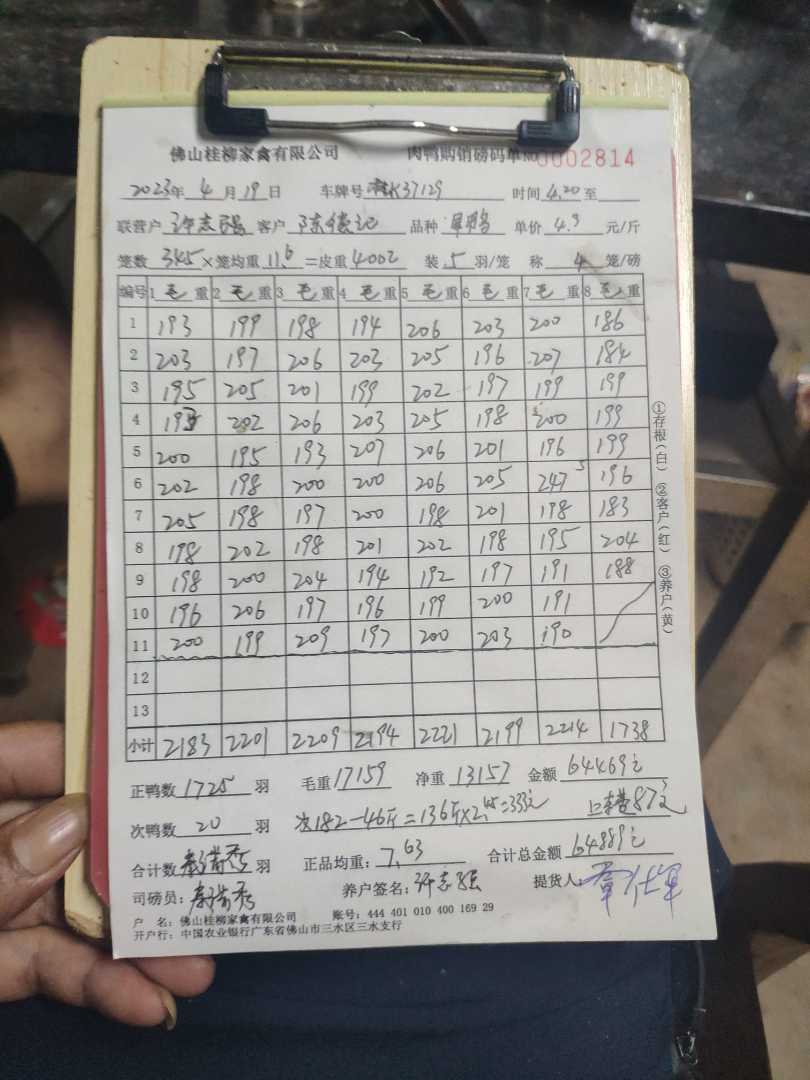 佛山桂柳家禽有限公司 肉鸭购销磅码单 No 0002814
2023年 4月 19日 车牌号 K37129 时间 4.20 至
联营户 许志强 客户 陈 记 品种 单价 4.9 元/斤
笼数 345 ×笼均重 11.6 =皮重 4002 装 5 羽/笼 称 4 笼/磅
编号 1 毛重 2 毛重 3 毛重 4 毛重 5 毛重 6 毛重 7 毛重 8 毛重
1 193 199 198 194 206 203 200 186
2 203 197 206 203 205 196 207 184
3 195 205 201 199 202 197 199 199
4 193 202 206 203 205 198 200 199
5 200 195 193 207 206 201 196 199
6 202 198 200 200 206 205 247 5 196
7 205 198 197 200 198 201 198 183
8 198 202 198 201 202 198 195 204
9 198 200 204 194 192 197 191 188
10 196 206 197 196 199 200 191
11 200 199 209 197 200 203 190
12
13
小计 2183 2201 2209 2194 2221 2199 2214 1738
正鸭数 1725 羽 毛重 17159 净重 13157 金额 64469元
次鸭数 20 羽 次182-46斤=136斤×2.45=333元 87元
合计数 羽 正品均重: 7.63 合计总金额 64889元
司磅员: 养户签名: 许志强 提货人:
户 名: 佛山桂柳家禽有限公司 账号: 444 401 010 400 169 29
开户行: 中国农业银行广东省佛山市三水区三水支行
①存根(白) ②客户(红) ③养户(黄)